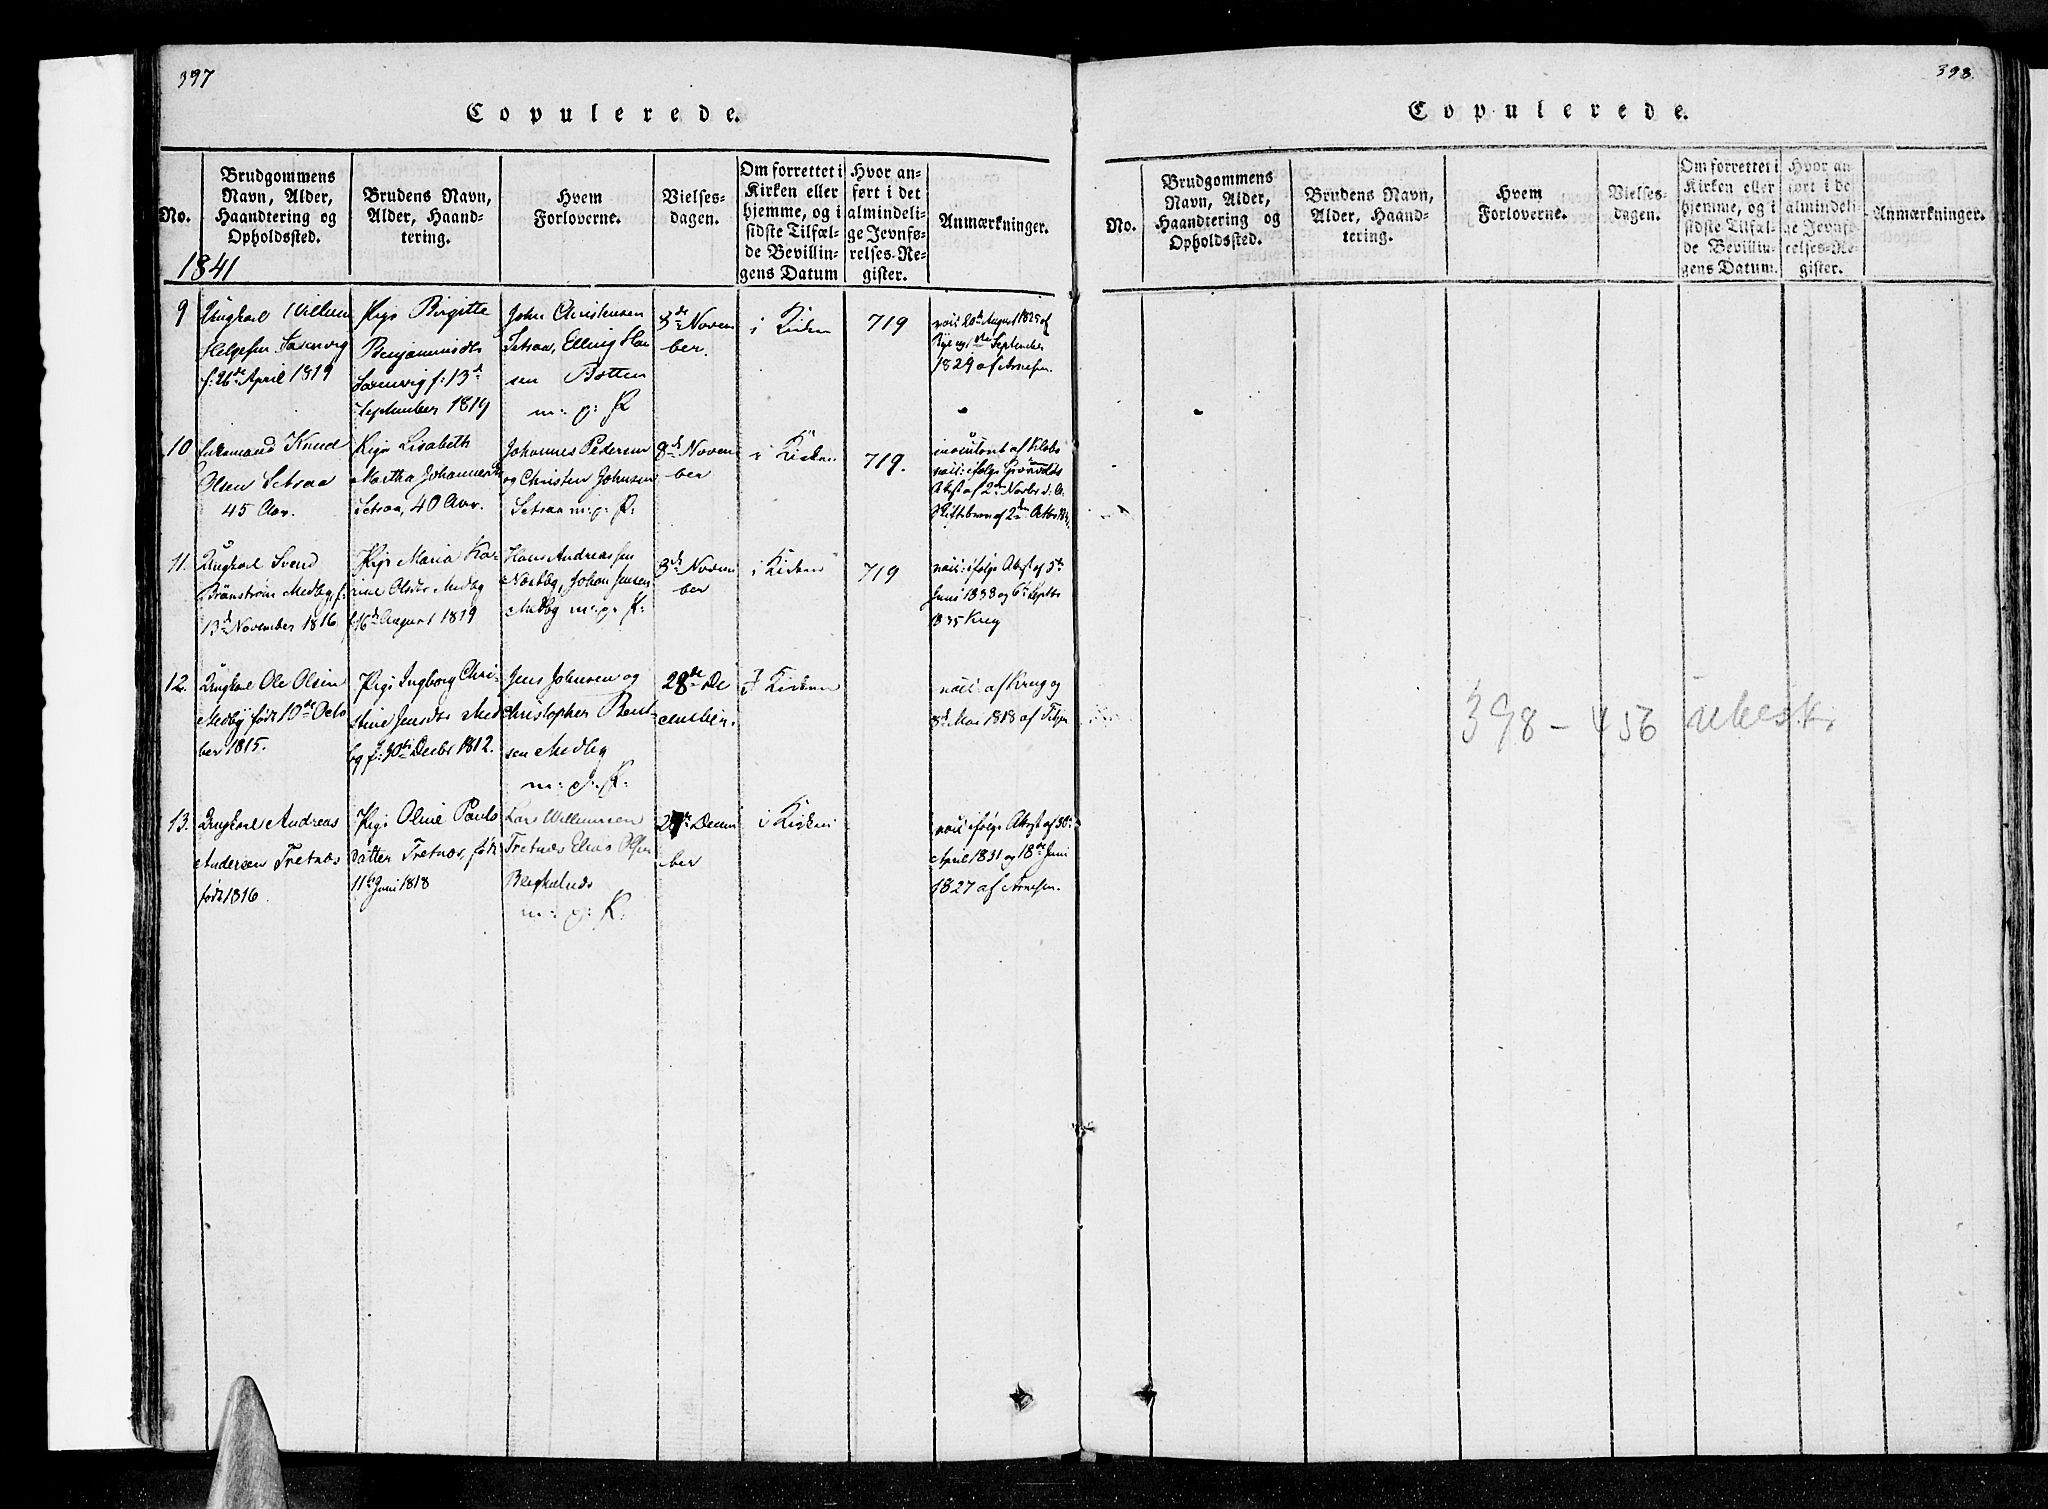 397
Copulerede.
No.
Brudgommens
Navn, Alder,
Haandtering og
Opholdssted.
Brudens Navn,
Alder, Haand-
tering.
Hvem
Forloverne.
Vielses-
dagen.
Om forrettet i
Kirken eller
hjemme, og i
sidste Tilfæl-
de Bevillin-
gens Datum
Hvor an-
ført i det
almindeli-
ge Jevnfø-
relses-Re-
gister.
Anmærkninger.
1841
9
Ungkarl Willum
Helgesen
f: 26de April 1819
Pige Birgitte
Benjaminsdtr
f: 13de
September 1819
John Christensen
Setsaa, Elling Han
sen Botten
m: p: K
3de Novem
ber.
i Kirken
719
vacc: 20de August 1825 af
og September
1829 af Arnesen.
10
Enkemand Knud
Olsen Setsaa
45 Aar.
Pige Lisabeth
Martha Johannesdtr
Setsaa, 40 Aar.
Johannes Pedersen
og Christen Johnsen
Setsaa m: p: K.
8de Novem
ber
i Kirken
719.
vacc: ifølge
Attest af 2den Novbr d. A.
af 2den Octbr
11.
Ungkarl Svend
Brönström Medby, f:
13de November 1816
Pige Maria Ka-
rine Olsdtr Medby
f 16de August 1819
Hans Andreassen
Nordby, Johan Jensen
Medby m: p: K:
3de Novem
ber
i Kirken
719
vacc: ifølge Attest af 5te
Juni 1833 og 6te Septbr
1835 Krog
12.
Ungkarl Ole Olsen
Medby født 10de Octo
ber 1815.
Pige Ingborg Chri-
stine Jensdtr Med
by f: 30te Decbr 1812.
Jens Johnsen og
Christopher Bent-
sen Medby
m: p: K:
28de De
cember.
I Kirken
vacc: af Krog og
1818 af
13.
Ungkarl Andreas
Andersen Tretnæs
født 1816
Pige Oline Pauls
datter Tretnæs, født
11te Juni 1818
Lars Willumsen
Tretnæs Elias Olsen
m: p: K:
Decem
ber
i Kirken
vacc: ifølge Attest af 30te
April 1831 og 18de Juni
1827 af Arnesen.
398.
Copulerede.
No.
Brudgommens
Navn, Alder,
Haandtering og
Opholdssted.
Brudens Navn,
Alder, Haand-
tering.
Hvem
Forloverne.
Vielses-
dagen.
Om forrettet i
Kirken eller
hjemme, og i
sidste Tilfæl-
de Bevillin-
gens Datum.
Hvor an-
ført i de
almindeli-
ge Jevnfø-
relses-Re-
gister.
Anmærkninger.
398 - 456 ubeskr.